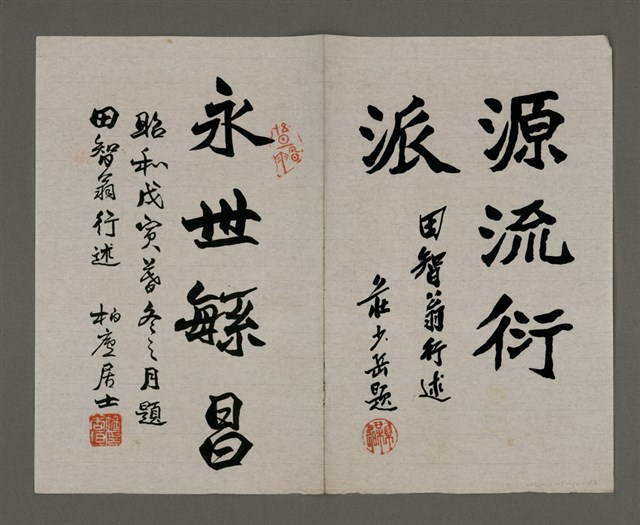 源流衍
派
田智翁行述
莊少岳題
永世繁昌
昭和戊寅暮冬之月題
田智翁行述 柏廬居士